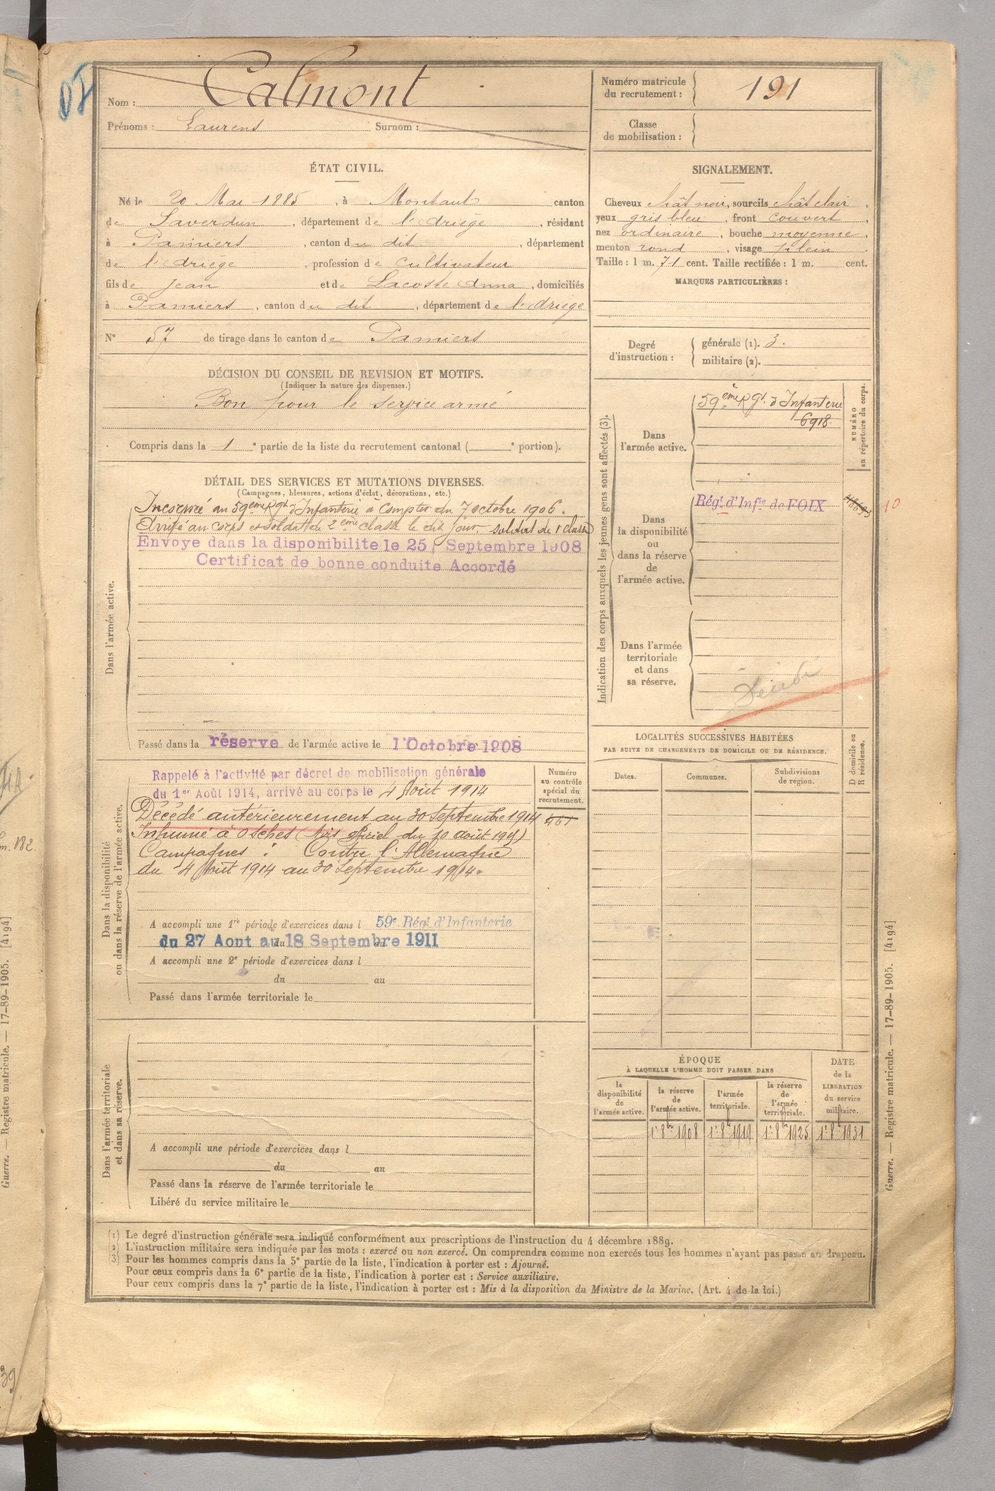 Nom : Calmont
Prénoms : Laurens Surnom :
Numéro matricule du recrutement : 191
Classe de mobilisation :
ÉTAT CIVIL.
Né le 20 Mai 1885, à Montaut canton
de Saverdun, département de l'Ariège, résidant
à Pamiers, canton du dit, département
de l'Ariège, profession de Cultivateur
fils de Jean et de Lacoste Anna, domiciliés
à Pamiers, canton du dit, département de l'Ariège
N° 57 de tirage dans le canton de Pamiers
SIGNALEMENT.
Cheveux chât noir, sourcils chât clair,
yeux gris bleu, front couvert,
nez ordinaire, bouche moyenne,
menton rond, visage plein
Taille : 1 m. 71 cent. Taille rectifiée : 1 m. cent.
MARQUES PARTICULIÈRES :
Degré d'instruction : générale (1). 3.
militaire (2).
DÉCISION DU CONSEIL DE REVISION ET MOTIFS.
(Indiquer la nature des dispenses.)
Bon pour le service armé
Compris dans la 1e partie de la liste du recrutement cantonal ( e portion).
DÉTAIL DES SERVICES ET MUTATIONS DIVERSES.
(Campagnes, blessures, actions d'éclat, décorations, etc.)
Dans l'armée active.
Incorporé au 59ème Rgt d'Infanterie à compter du 7 octobre 1906.
Arrivé au corps et soldat de 2ème classe le dit jour. soldat de 1 classe
Envoye dans la disponibilite le 25 Septembre 1908
Certificat de bonne conduite Accordé
Passé dans la réserve de l'armée active le 1 Octobre 1908
Indication des corps auxquels les jeunes gens sont affectés (3).
NUMÉRO au répertoire du corps.
Dans l'armée active.
59ème Rgt d'Infanterie
6918
Dans la disponibilité ou dans la réserve de l'armée active.
Régt d'Infie de FOIX
10
Dans l'armée territoriale et dans sa réserve.
Dans la disponibilité ou dans la réserve de l'armée active.
Numéro au contrôle spécial du recrutement.
Rappelé à l'activité par décret de mobilisation générale
du 1er Août 1914, arrivé au corps le 4 Août 1914
Décédé antérieurement au 30 Septembre 1914
Inhumé à Osches (Avis officiel du 10 août 1915)
Campagnes : Contre l'Allemagne
du 4 Août 1914 au 30 Septembre 1914.
A accompli une 1re période d'exercices dans l 59e Régt d'Infanterie
du 27 Aont au 18 Septembre 1911
A accompli une 2e période d'exercices dans l
du au
Passé dans l'armée territoriale le
LOCALITÉS SUCCESSIVES HABITÉES
PAR SUITE DE CHANGEMENTS DE DOMICILE OU DE RÉSIDENCE.
Dates. Communes. Subdivisions de région.
D domicile ou R résidence.
Dans l'armée territoriale et dans sa réserve.
A accompli une période d'exercices dans l
du au
Passé dans la réserve de l'armée territoriale le
Libéré du service militaire le
ÉPOQUE
À LAQUELLE L'HOMME DOIT PASSER DANS
la disponibilité de l'armée active.
la réserve de l'armée active.
l'armée territoriale.
la réserve de l'armée territoriale.
DATE de la LIBÉRATION du service militaire.
1r 8bre 1908 1r 8bre 1919 1r 8bre 1925 1r 8bre 1931
(1) Le degré d'instruction générale sera indiqué conformément aux prescriptions de l'instruction du 4 décembre 1889.
(2) L'instruction militaire sera indiquée par les mots : exercé ou non exercé. On comprendra comme non exercés tous les hommes n'ayant pas passé au drapeau.
(3) Pour les hommes compris dans la 5e partie de la liste, l'indication à porter est : Ajourné.
Pour ceux compris dans la 6e partie de la liste, l'indication à porter est : Service auxiliaire.
Pour ceux compris dans la 7e partie de la liste, l'indication à porter est : Mis à la disposition du Ministre de la Marine. (Art. 4 de la loi.)
Guerre. — Registre matricule. — 17-89-1905. [4194]
Guerre. — Registre matricule. — 17-89-1905. [4194]